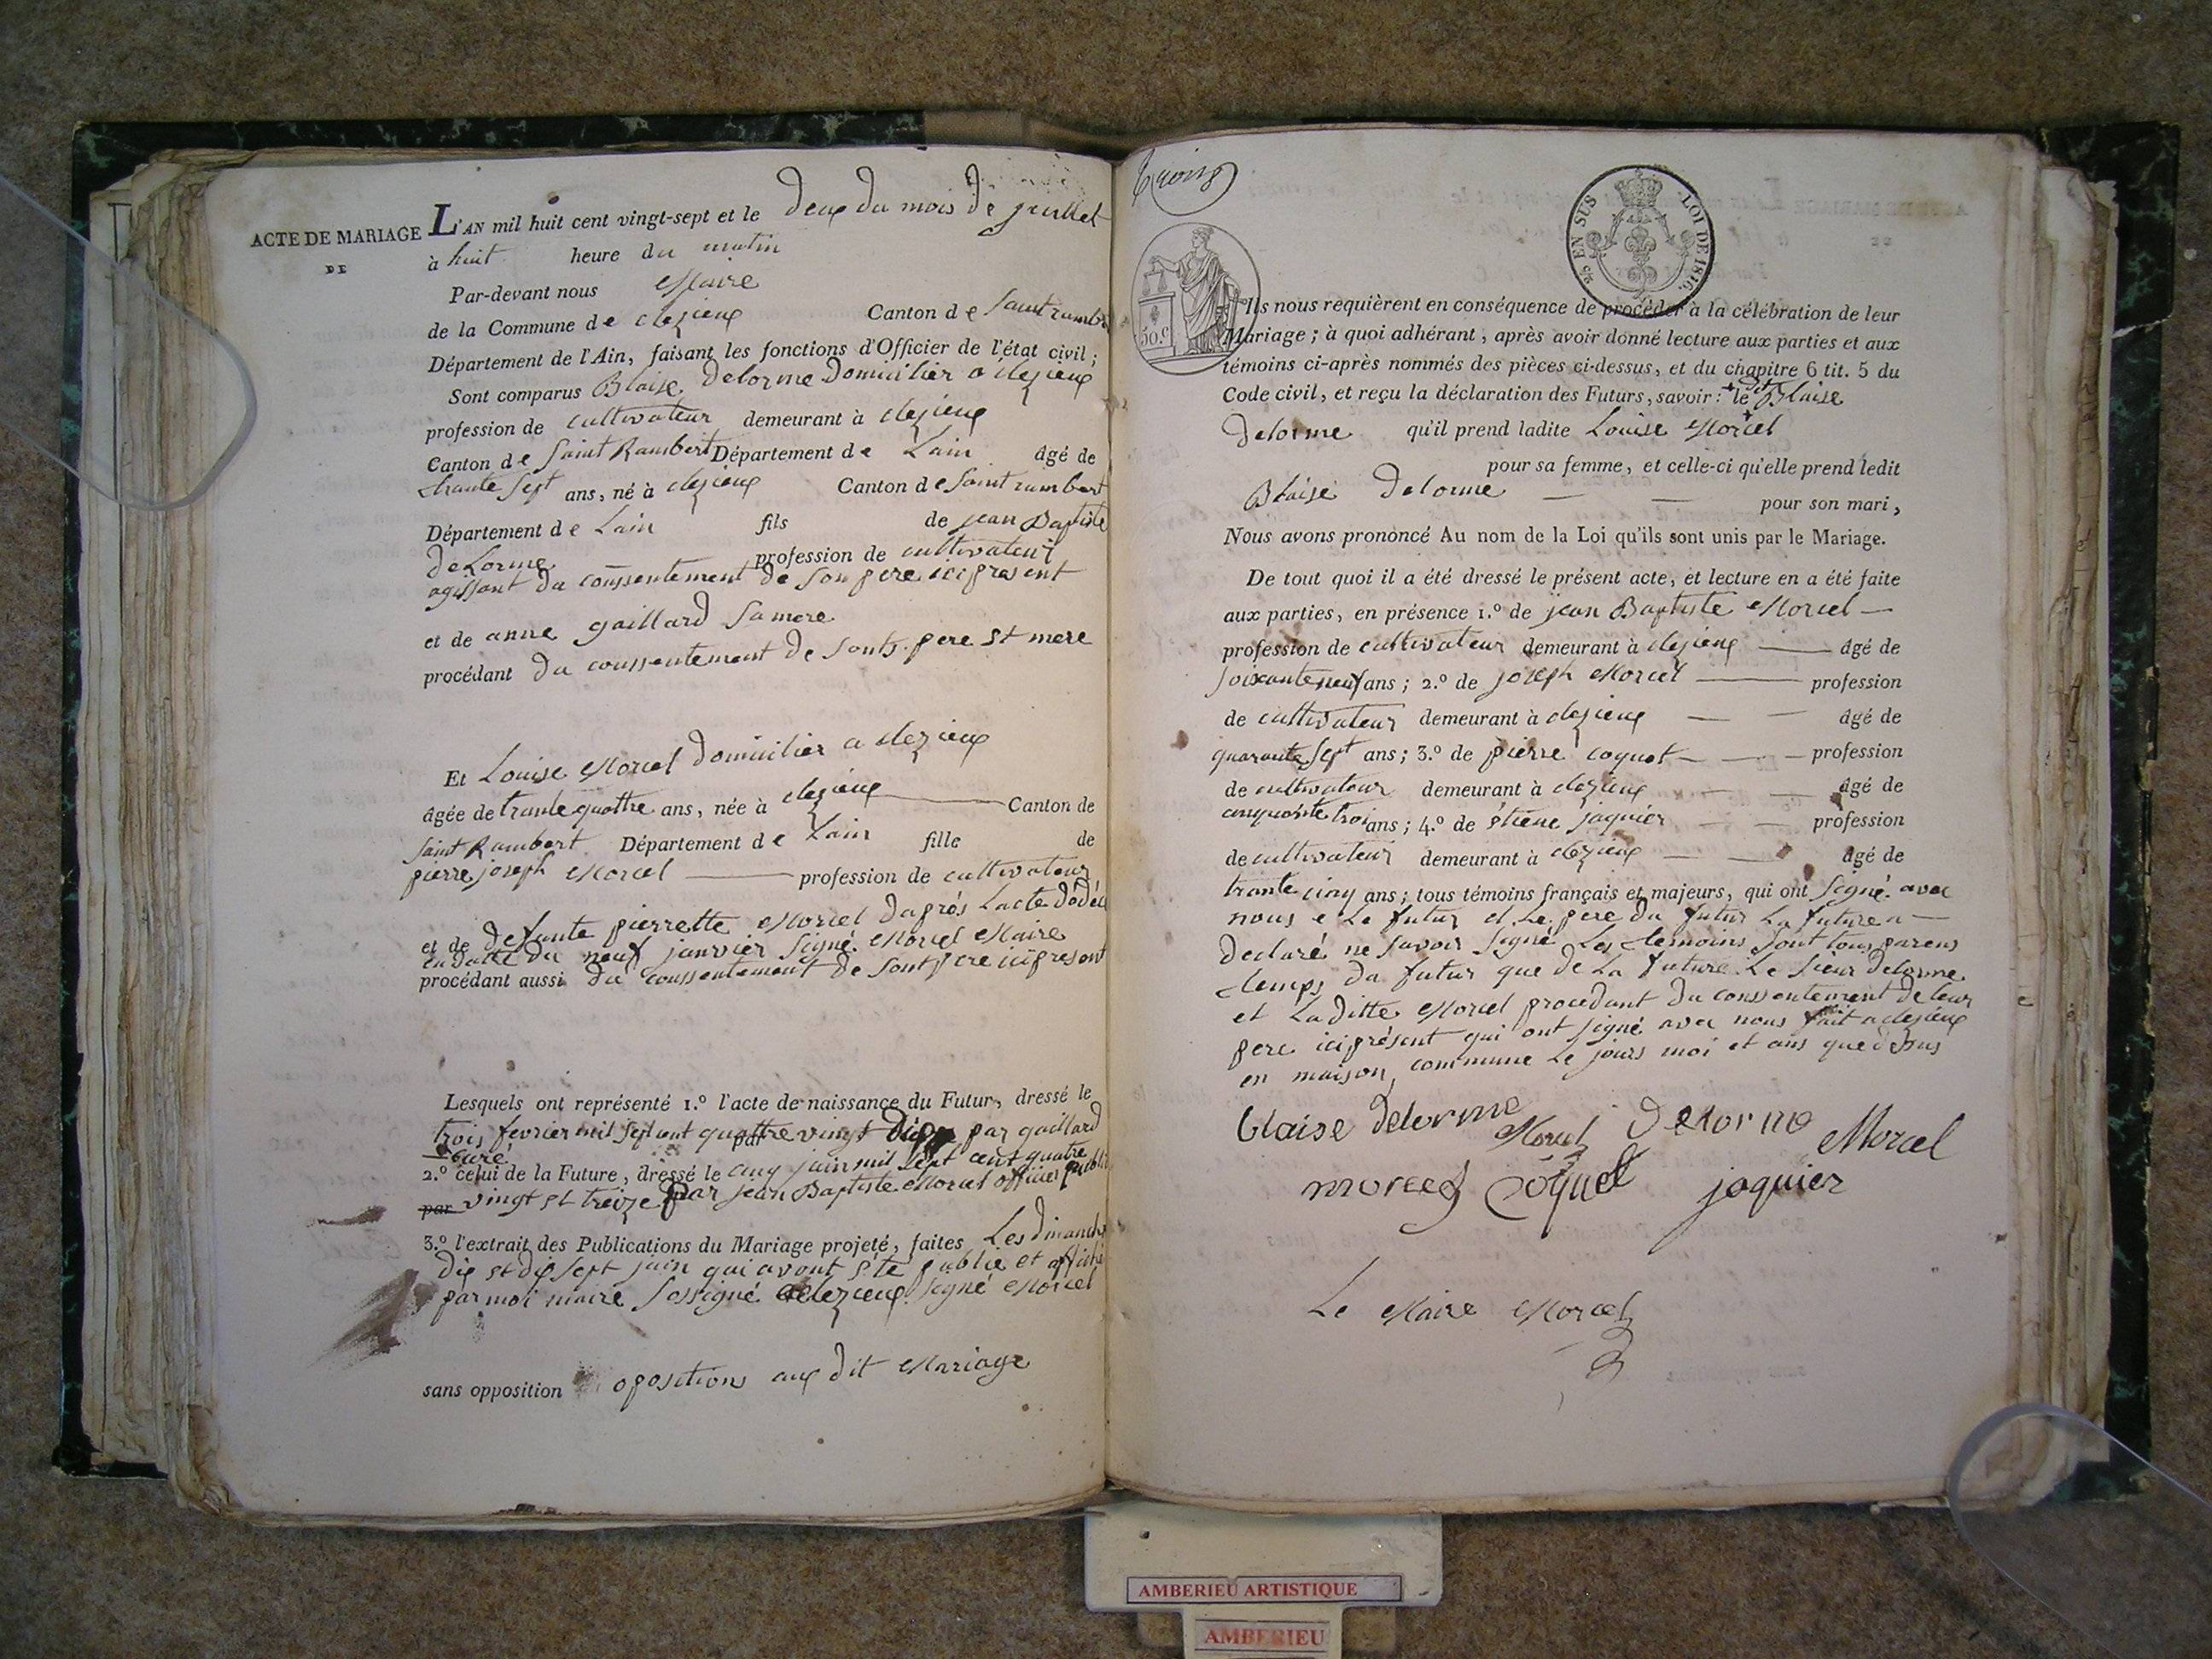 ACTE DE MARIAGE
DE
L'AN mil huit cent vingt-sept et le deux du mois de juillet
à huit heure du matin
Par-devant nous Maire
de la Commune de clezieux Canton de Saint rambert
Département de l'Ain, faisant les fonctions d'Officier de l'état civil;
Sont comparus Blaise Delorme Domicilier a clezieux
profession de cultivateur demeurant à clezieux
Canton de Saint Rambert Département de Lain âgé de
trante Sept ans, né à clezieux Canton de Saint rambert
Département de Lain fils de jean Baptiste
DeLorme profession de cultivateur
agissant du conssentement de son pere ici present
et de anne gaillard Sa mere
procédant du conssentement de sonts pere et mere
Et Louise Morcel Domicilier a clezieux
âgée de trante quattre ans, née à clezieux Canton de
Saint Rambert Département de Lain fille de
pierre joseph Morcel profession de cultivateur
et de defunte pierrette Morcel daprés Lacte dédéc
en datte du neuf janvier Signé Morcel Maire
procédant aussi du conssentement de sont pere ici present
Lesquels ont représenté 1.º l'acte de naissance du Futur, dressé le
trois fevrier mil Sept cent quattre vingt Dix par gaillard
curé
2.º celui de la Future, dressé le cinq juin mil Sept cent quatre
par vingt et treize par jean Baptiste Morcel officier public
3.º l'extrait des Publications du Mariage projeté, faites Les Dimanche
dix et dix Sept juin qui avont été publié et affiché
par moi maire Sossigné clezieux Signé Morcel
sans opposition opositions aux dit Mariage
50.C
25 EN SUS LOI DE 1816.
Ils nous requièrent en conséquence de procéder à la célébration de leur
Mariage; à quoi adhérant, après avoir donné lecture aux parties et aux
témoins ci-après nommés des pièces ci-dessus, et du chapitre 6 tit. 5 du
Code civil, et reçu la déclaration des Futurs, savoir: le dit Blaise
Delorme qu'il prend ladite Louise Morcel
pour sa femme, et celle-ci qu'elle prend ledit
Blaise Delorme pour son mari,
Nous avons prononcé Au nom de la Loi qu'ils sont unis par le Mariage.
De tout quoi il a été dressé le présent acte, et lecture en a été faite
aux parties, en présence 1.º de jean Baptiste Morcel
profession de cultivateur demeurant à clezieux âgé de
soixante neuf ans; 2.º de joseph Morcel profession
de cultivateur demeurant à clezieux âgé de
quarante Sept ans; 3.º de pierre coquet profession
de cultivateur demeurant à clezieux âgé de
cinquante trois ans; 4.º de étiene jaquier profession
de cultivateur demeurant à clezieux âgé de
trante cinq ans; tous témoins français et majeurs, qui ont Signé avec
nous e Le futur et Le pere du futur La future a
declaré ne savoir Signé Les temoins Sont tous parens
temps du futur que de La future Le Sieur Delorme
et La ditte Morcel procedant du conssentement de leur
pere ici présent qui ont signé avec nous fait a clezieux
en maison commune Le jours moi et ans que dessus
blaise delorme Morcel Delorme Morcel
morcel Coquet jaquier
Le Maire Morcel
AMBERIEU ARTISTIQUE
AMBERIEU